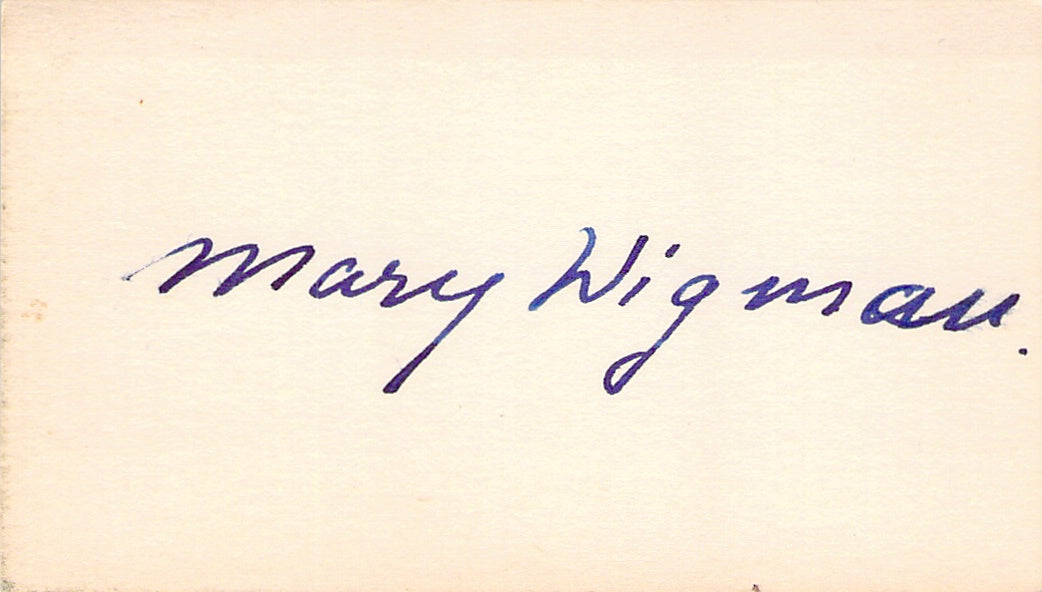 Mary Wigman.